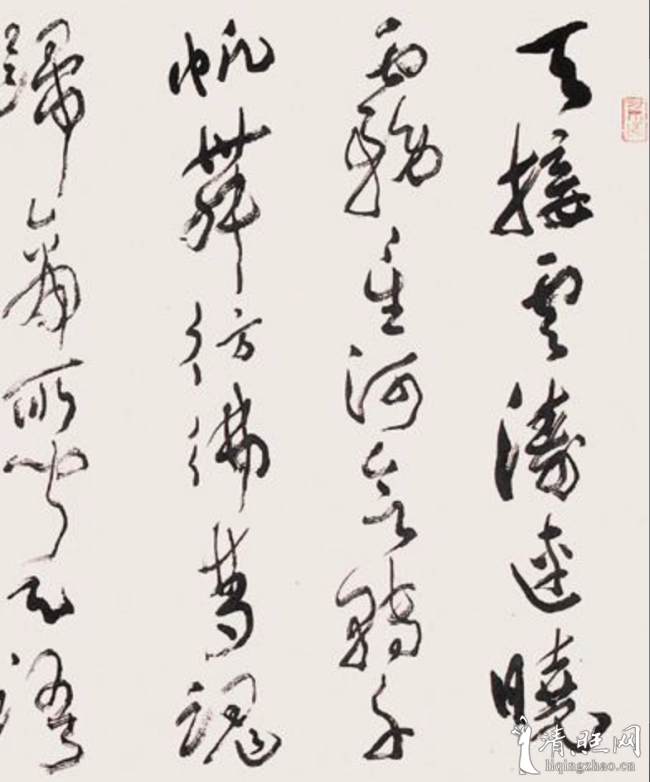 天接雲濤連曉
霧星河欲轉千
帆舞彷彿夢魂
歸帝所聞天語
清旺网
liqingzhao.com.cn